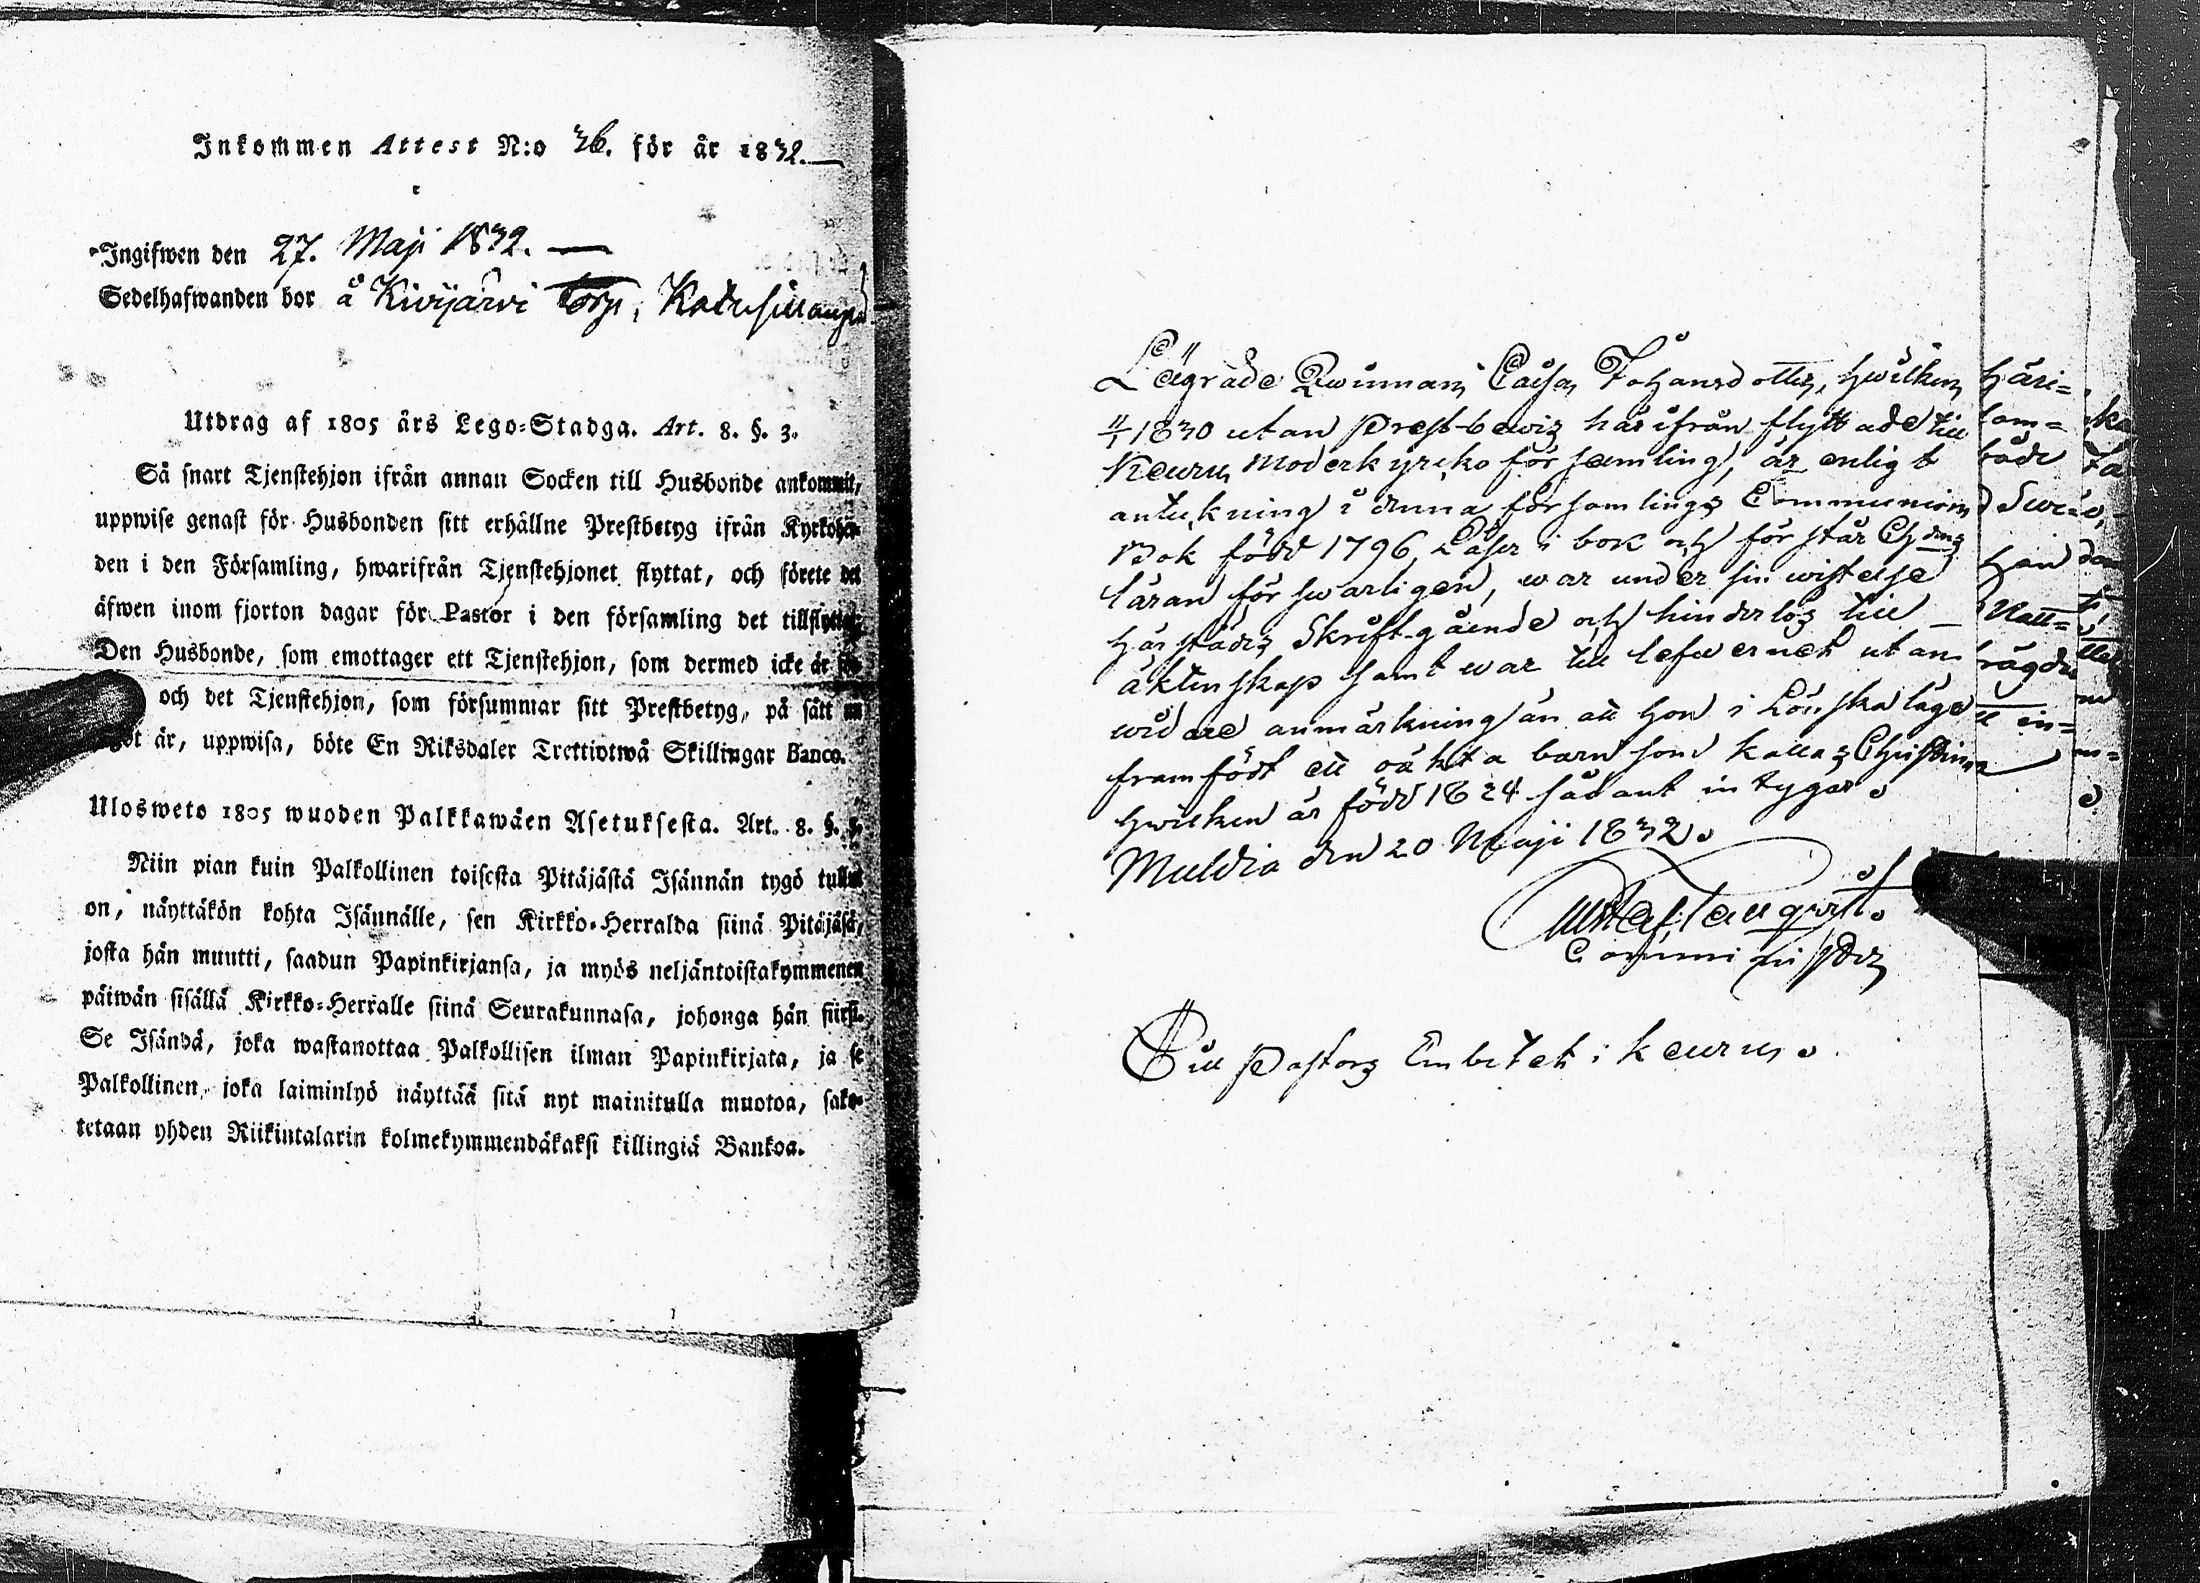 Inkommen Attest N:o 36. för år 1832.
Ingifwen den 27. Maji 1832.
Sedelhafwanden bor å Kivijärvi torp,
Utdrag af 1805 års Lego-Stadga. Art. 8. §. 3.
Så snart Tjenstehjon ifrån annan Socken till Husbonde ankommit,
uppwise genast för Husbonden sitt erhållne Prestbetyg ifrån
den i den Församling, hwarifrån Tjenstehjonet flyttat, och förete det
äfwen inom fjorton dagar för Pastor i den församling det
Den Husbonde, som emottager ett Tjenstehjon, som dermed icke är
och det Tjenstehjon, som försummar sitt Prestbetyg, på sätt
är, uppwisa, böte En Riksdaler Trettiotwå Skillingar Banco.
Ulosweto 1805 wuoden Palkkawäen Asetuksesta. Art. 8. §.
Niin pian kuin Palkollinen toisesta Pitäjästä Isännän tygö tullut
on, näyttäkön kohta Isännälle, sen Kirkko-Herralda siinä Pitäjäsä,
josta hän muutti, saadun Papinkirjansa, ja myös neljäntoistakymmenen
päiwän sisällä Kirkko-Herralle siinä Seurakunnasa, johonga hän siirsi.
Se Isändä, joka wastanottaa Palkollisen ilman Papinkirjata, ja se
Palkollinen, joka laiminlyö näyttää sitä nyt mainitulla muotoa, sako-
tetaan yhden Riikintalarin kolmekymmendäkaksi killingiä Bankoa.
Lägrade Qwinnan Caisa Johansdotter, hwilken
1830 utan Prest-bewis härifrån flyttade till
Keuru Moderkyrko församling, är enligt
anteckning i denna församlings Communion
Bok född 1796, Läser i bok och förstår Chdms
läran förswarligen, war under sin wistelse
härstädes Skriftgående och hinderlös till
äktenskap samt war till lefwernet utan
widare anmärkning än att hon i Lönskaläge
framfödt ett oäkta barn som kallas Christina
hwilken är född 1824 sådant intygar.
Muldia den 20 Maji 1832.
Comminister
Till Pastors Embetet i Keuru.
häri=
både